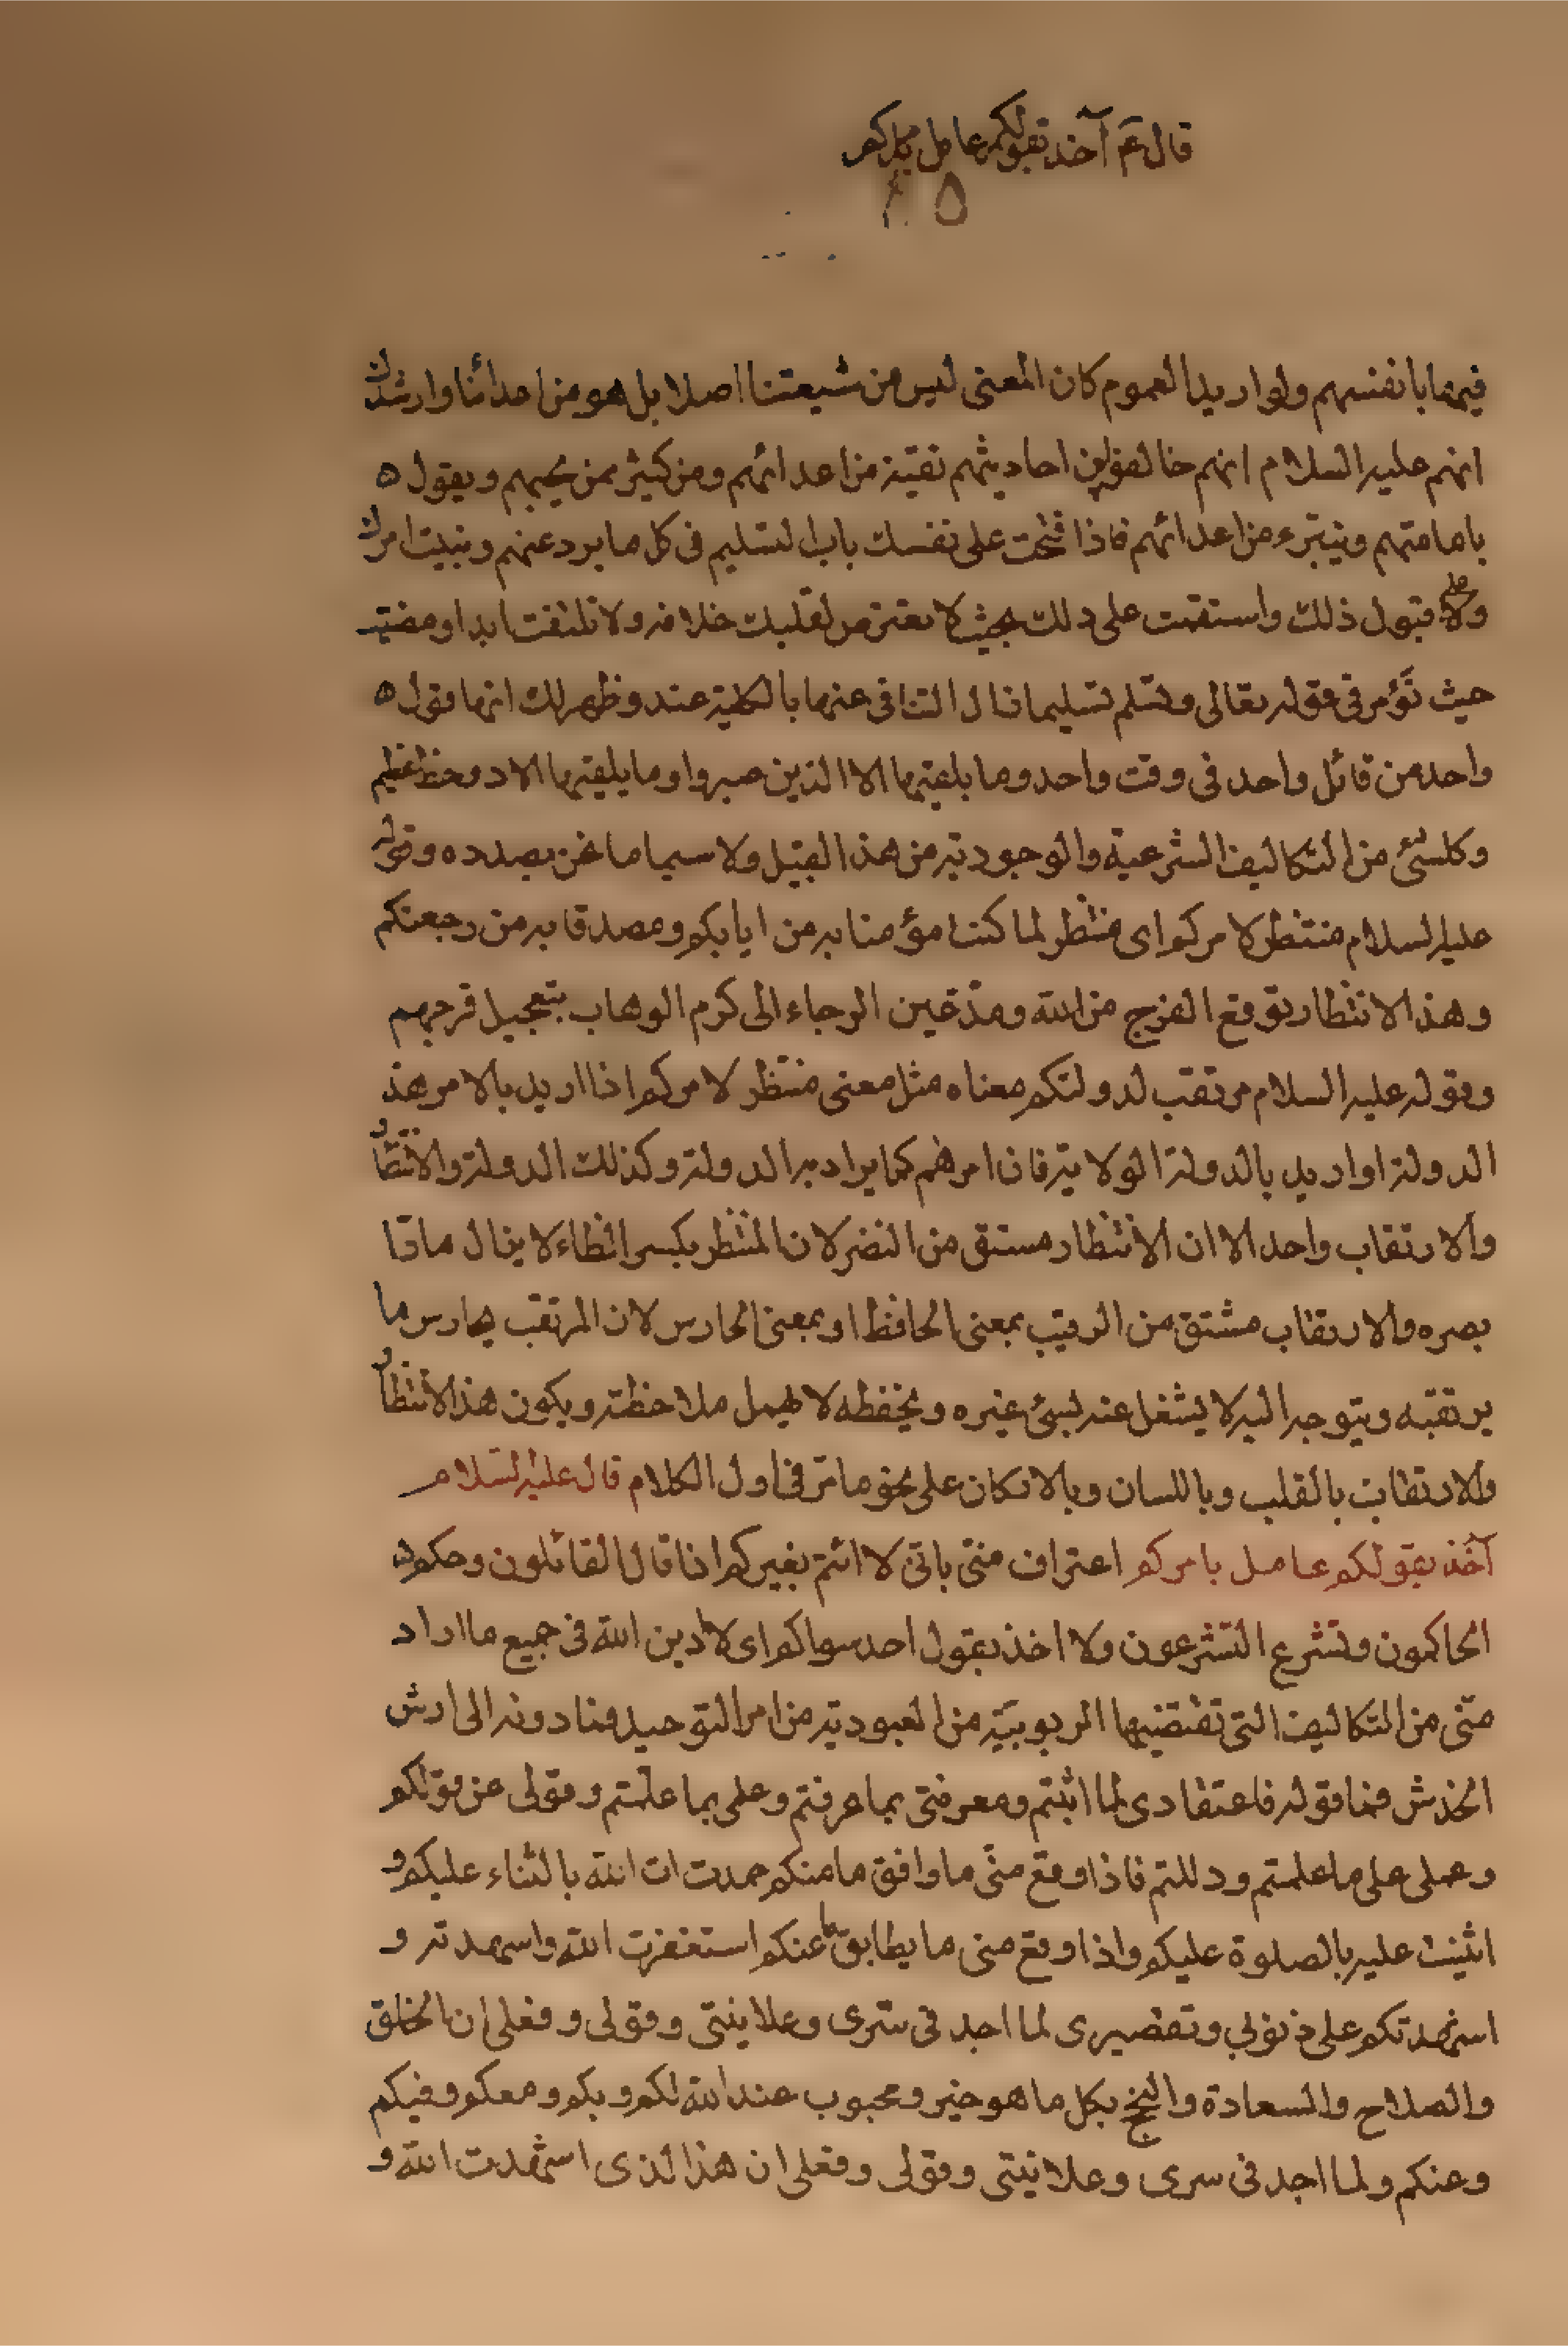 قال ع آخذ بقولكم عامل بامركم
فيها بانفسهم ولو اريد العموم كان المعنى ليس من شيعتنا اصلا بل هو من اعدائنا وارشدك
انهم عليه السلام انهم خالفوا بين احاديثهم تقية من اعدائهم ومن كثير ممن يحبهم ويقول ه
بامامتهم ويتبرء من اعدائهم فاذا فتحت على نفسك باب التسليم فى كل ما يرد عنهم وبنيت امرك
على قبول ذلك واستقمت على ذلك بحيث لا يعترض لقلبك خلافه ولا تلتفت ابدا ومضيت
حيث تؤمر فى قوله تعالى وتسلم تسليما نال التنافى عنها بالكلية عند وظهر لك انها قول ه
واحد من قائل واحد فى وقت واحد وما يلقيها الا الذين صبروا وما يلقيها الا ذو حظ عظيم
وكلشئ من التكاليف الشرعية والوجودية من هذا القبيل ولا سيما ما نحن بصدده وقوله
عليه السلام منتظر لامركم اى منتظر لما كنت مؤمنا به من ايابكم ومصدقا به من رجعتكم
وهذا الانتظار توقع الفرج من الله ومد عين الرجاء الى كرم الوهاب بتعجيل فرجهم
وقوله عليه السلام مرتقب لدولتكم معناه مثل معنى منتظر لامركم اذا اريد بالامر هذ
الدولة او اريد بالدولة الولاية فان امرهم كما يراد به الدولة وكذلك الدولة والانتظار
والارتقاب واحد الا ان الانتظار مشتق من النضر لان المنتظر بكسر الظاء لا يزال مادا
بصره والارتقاب مشتق من الرقيب بمعنى الحافظ او بمعنى الحارس لان المرتقب يحارس ما
يرتقبه ويتوجه اليه لا يشغل عنه بشئ غيره ويحفظه لا يهمل ملاحظته ويكون هذا الانتظار
والارتقاب بالقلب وباللسان وبالاركان على نحو ما مر فى اول الكلام قال عليه السلام
آخذ بقولكم عامل بامركم اعتراف منى بانى لا ائتم بغيركم اذا قال القائلون وحكم
الحاكمون وتشرع المتشرعون ولا اخذ بقول احد سواكم اى لا ادين الله فى جميع ما اراد
منى من التكاليف التى تقتضيها الربوبية من العبودية من امر التوحيد فنا دونه الى ارش
الخدش فما فوقه فاعتقادى لما اثبتم ومعرفتى بما عرفتم وعلمى بما علمتم وقولى عن قولكم
وعملى على ما علمتم ودللتم فاذا وقع منى ما وافق ما منكم حمدت الله بالثناء عليكم و
اثنيت عليه بالصلوة عليكم واذا وقع منى ما يطابق ما عنكم استغفرت الله واشهدته و
اشهدتكم على ذنوبى وتقصيرى لما اجد فى سرى وعلانيتى وقولى وفعلى ان الحق
والصلاح والسعادة والنجح بكل ما هو خير ومحبوب عند الله لكم وبكم ومعكم وفيكم
وعنكم ولما اجد فى سرى وعلانيتى وقولى وفعلى ان هذا الذى اشهدت الله و